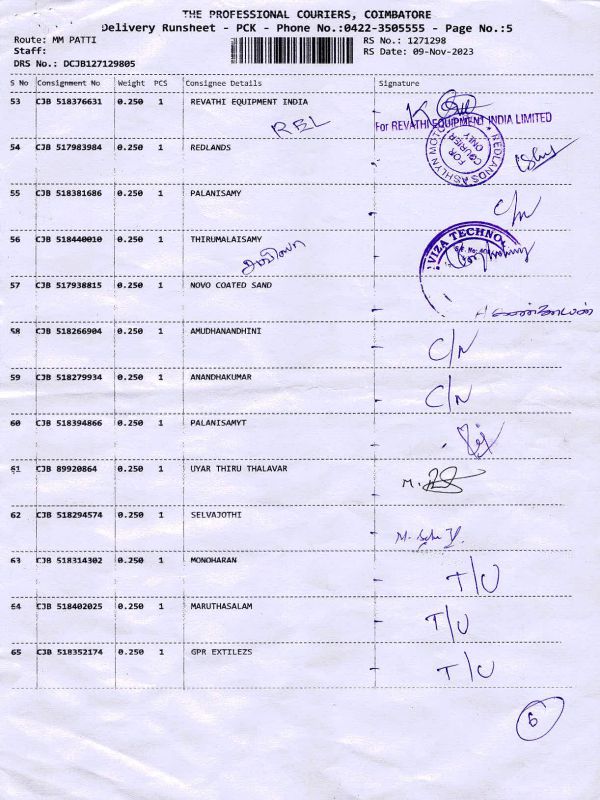 THE PROFESSIONAL COURIERS, COIMBATORE
Delivery Runsheet - PCK - Phone No.:0422-3505555 - Page No.:5
Route: MM PATTI RS No.: 1271298
Staff: RS Date: 09-Nov-2023
DRS No.: DCJB127129805
S No Consignment No Weight PCS Consignee Details Signature
53 CJB 518376631 0.250 1 REVATHI EQUIPMENT INDIA
REL For REVATHI EQUIPMENT INDIA LIMITED
54 CJB 517983984 0.250 1 REDLANDS
REDLANDS ASHLYN MOTO
FOR COURIER ONLY
55 CJB 518381686 0.250 1 PALANISAMY C/N
56 CJB 518440010 0.250 1 THIRUMALAISAMY
VIZA TECHNO
57 CJB 517938815 0.250 1 NOVO COATED SAND
58 CJB 518266904 0.250 1 AMUDHANANDHINI C/N
59 CJB 518279934 0.250 1 ANANDHAKUMAR C/N
60 CJB 518394866 0.250 1 PALANISAMYT
61 CJB 89920864 0.250 1 UYAR THIRU THALAVAR
62 CJB 518294574 0.250 1 SELVAJOTHI
63 CJB 518314302 0.250 1 MONOHARAN T/U
64 CJB 518402025 0.250 1 MARUTHASALAM T/U
65 CJB 518352174 0.250 1 GPR EXTILEZS T/U
6